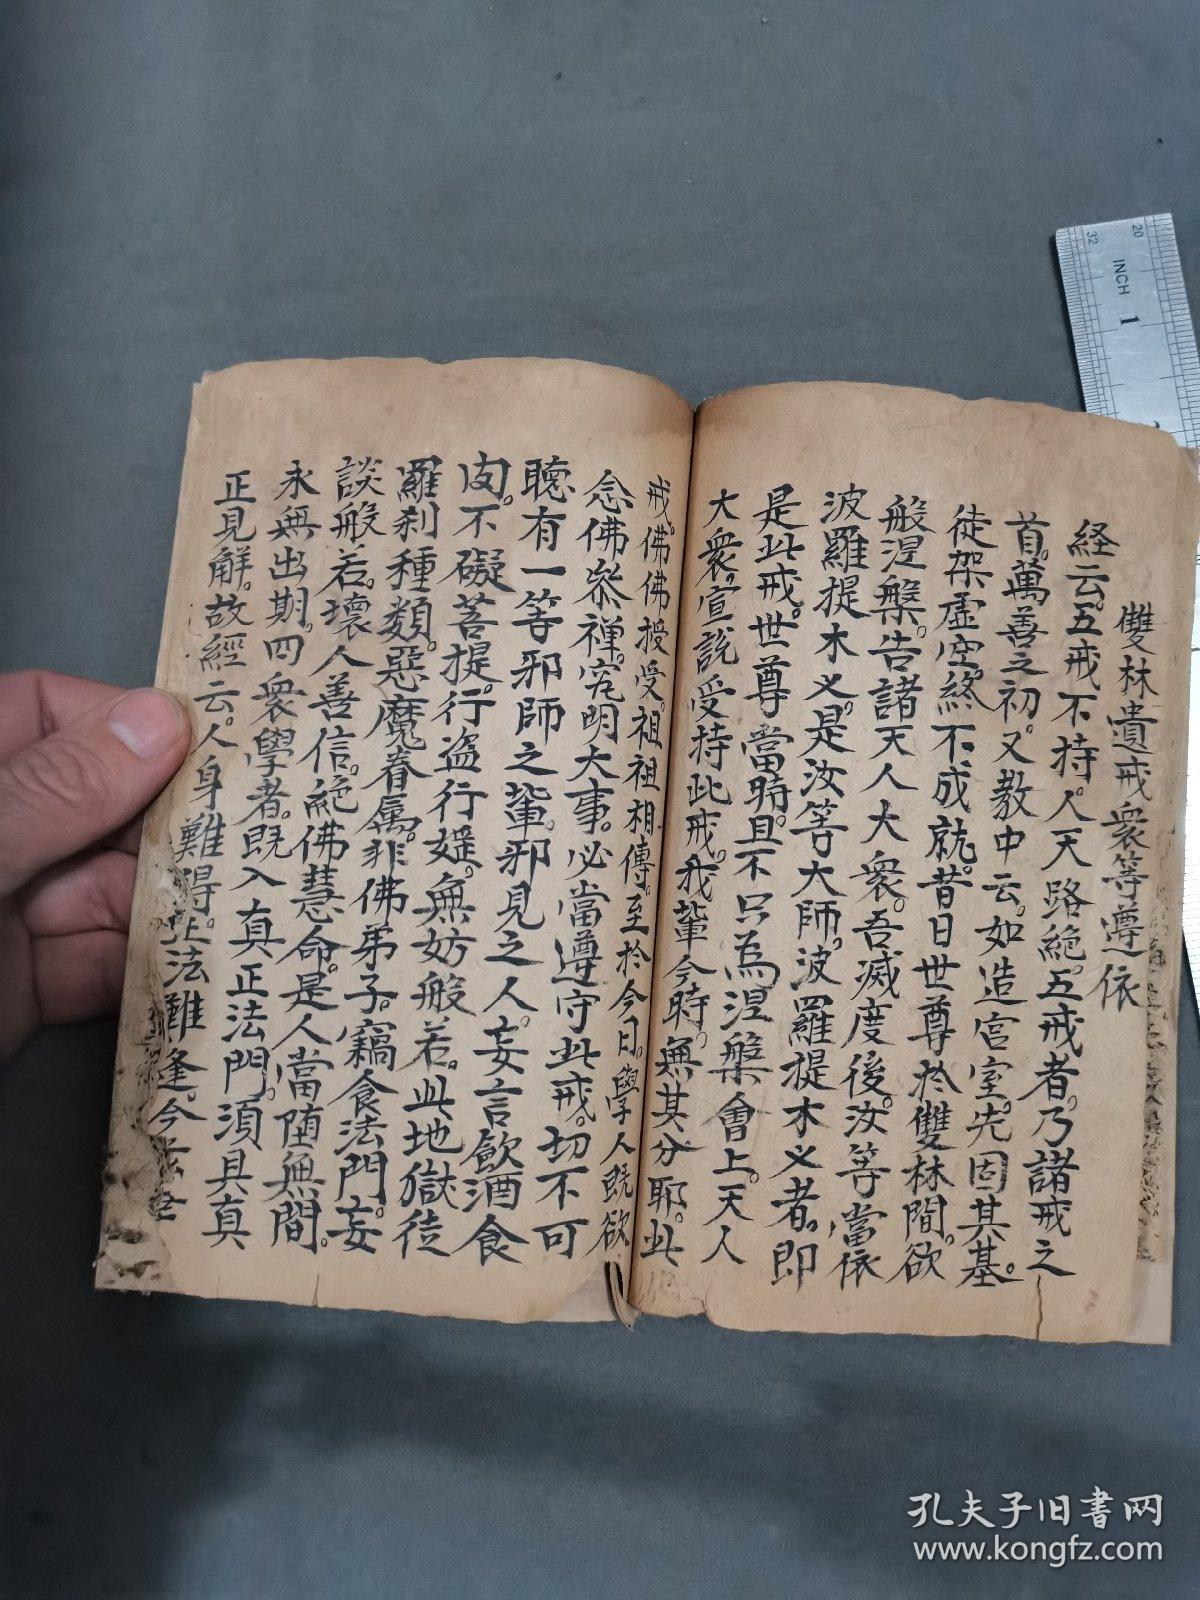 雙林遺戒衆等遵依
経云。五戒不持。人天路絶。五戒者。乃諸戒之
首。萬善之初。又教中云。如造宫室。先固其基。
徒架虚空。終不成就。昔日世尊於雙林間。欲
般涅槃。告諸天人大衆。吾滅度後。汝等當依
波羅提木义。是汝等大師。波羅提木义者。即
是此戒。世尊當時。且不只為涅槃會上。天人
大衆。宣説受持此戒。我輩今時。無其分耶。此
戒。佛佛授受。祖祖相傳。至於今日。學人既欲
念佛叅禅。究明大事。必當遵守此戒。切不可
聴有一等邪師之輩。邪見之人。妄言飲酒食
肉。不礙菩提。行盗行婬。無妨般若。此地獄徒
羅刹種類。惡魔眷属。非佛弟子。竊食法門。妄
談般若。壞人善信。絶佛慧命。是人當堕無間。
永無出期。四衆學者。既入真正法門。須具真
正見解。故經云。人身難得。正法難逢。今
INCH
1
32
20
孔夫子旧书网
www.kongfz.com